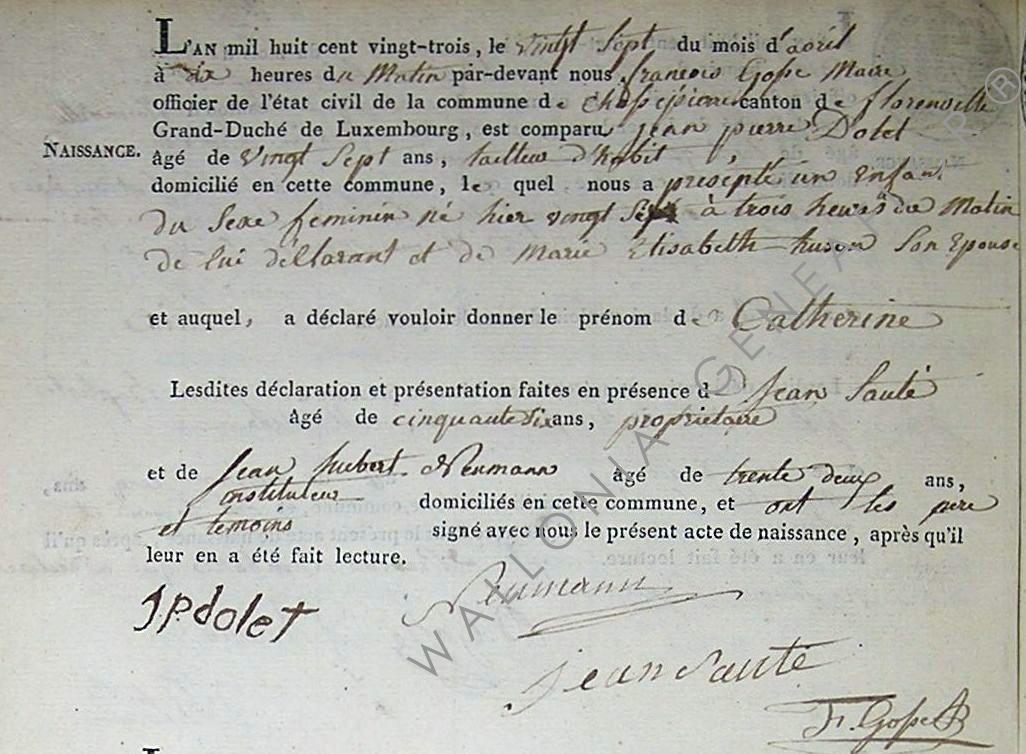 NAISSANCE.
L'AN mil huit cent vingt-trois, le vingt Sept du mois d'avril
à dix heures du Matin par-devant nous françois Gosse Maire
officier de l'état civil de la commune de canton de florenville
Grand-Duché de Luxembourg, est comparu jean pierre Dolet
âgé de vingt Sept ans, tailleur d'habit
domicilié en cette commune, le quel nous a présenté un enfant
du Sexe feminin né hier vingt à trois heures du Matin
de lui déclarant et de Marie Elisabeth husson Son Epouse
et auquel, a déclaré vouloir donner le prénom de Catherine
Lesdites déclaration et présentation faites en présence d Jean Sauté
âgé de cinquante six ans, proprietaire
et de Jean hubert Neumann âgé de trente deux ans,
instituteur domiciliés en cette commune, et ont les père
et temoins signé avec nous le présent acte de naissance, après qu'il
leur en a été fait lecture.
J.P. dolet
Neumann
jean Sauté
Fr. Gosse
WALLONIA GENEA